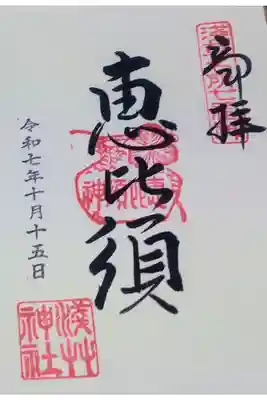 奉拝
恵比須
令和七年十月十五日
浅草神社